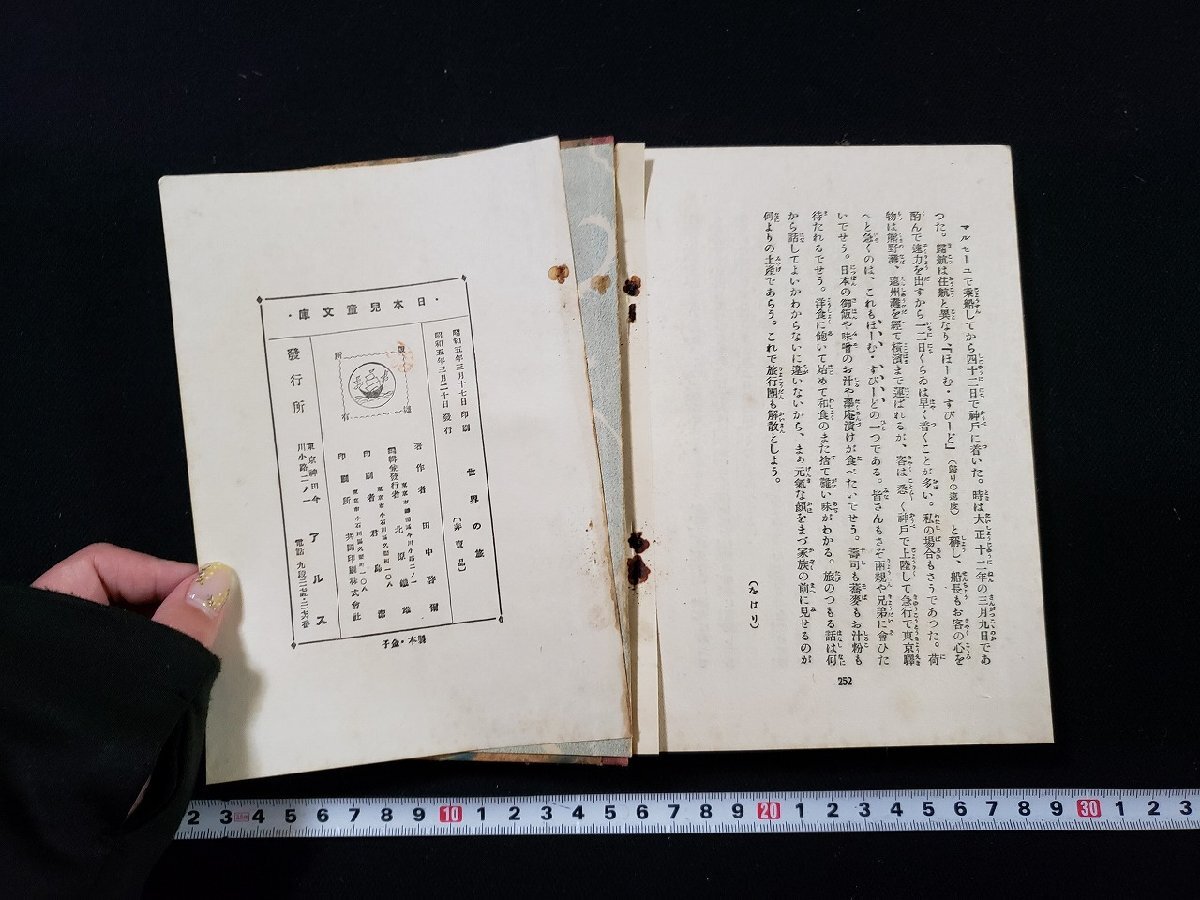 マルセーユで乘船してから四十二日で神戸に着いた。時は大正十二年の三月九日であ
つた。歸航は往航と異なり、『ほーむ・すぴーど』(歸りの速度)と稱し、船長もお客の心を
酌んで速力を出すから一二日ぐらゐは早く着くことが多い。私の場合もさうであつた。荷
物は熊野灘、遠州灘を經て橫濱まで運ばれるが、客は悉く神戸で上陸して急行で東京驛
へと急ぐのは、これもほーむ・すぴーどの一つである。皆さんもさぞ兩親や兄弟に會ひた
いでせう。日本の御飯や味噌のお汁や澤庵漬けが食べたいでせう。壽司も蕎麥もお汁粉も
待たれるでせう。洋食に飽いて始めて和食のまた捨て難い味がわかる。旅のつもる話は何
から話してよいかわからないに違いないから、まあ元氣な顏をまづ家族の前に見せるのが
何よりの土產であらう。これで旅行團も解散としよう。
(をはり)
252
・日本兒童文庫・
昭和五年三月十七日印刷
昭和五年三月二十日發行
世界の旅
(非賣品)
著作者 田中
編輯兼發行者 北原鐵雄
印刷者 君島潔
東京市小石川區久堅町一〇八
印刷所 共同印刷株式會社
東京市小石川區久堅町一〇八
發行所
東京神田今
川小路二ノ一
アルス
製本・金子
10
20
30